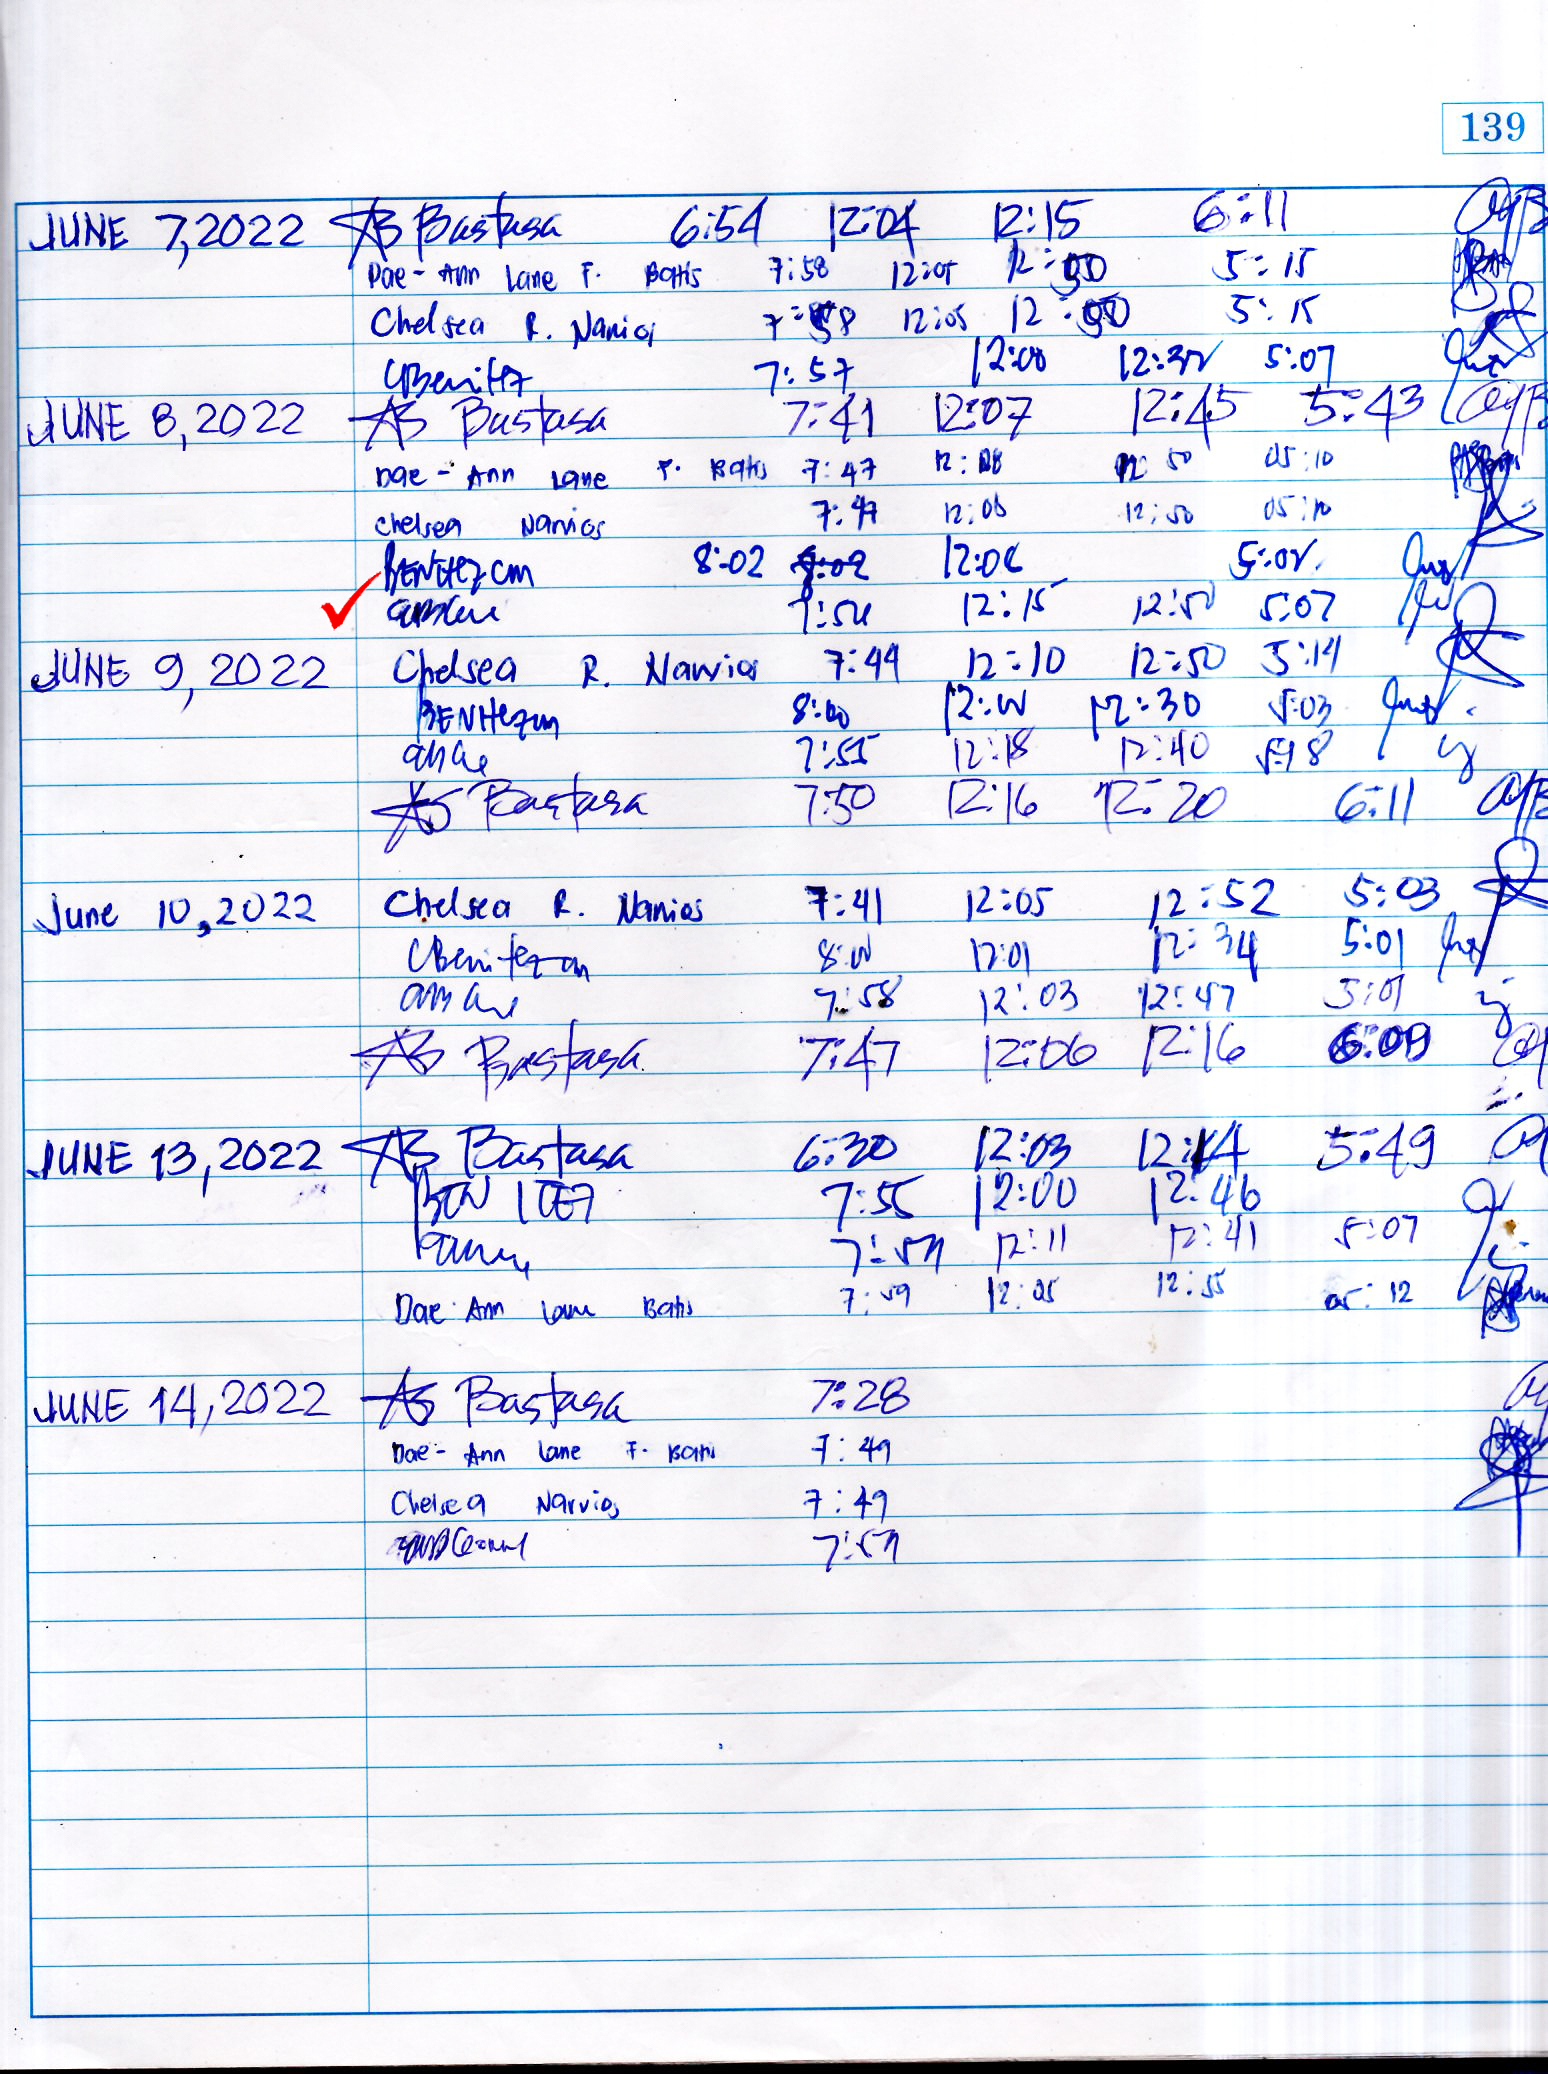 139
JUNE 7,2022 AB Bastasa 6:54 12:04 12:15 6:11
Dae-Ann Lane F. Batis 7:58 12:05 12:50 5:15
Chelsea R. Narvios 7:58 12:05 12:50 5:15
CBenitez 7:57 12:00 12:32 5:07
JUNE 8,2022 AB Bastasa 7:41 12:07 12:45 5:43
Dae-Ann Lane F. Batis 7:47 12:08 12:50 05:10
Chelsea Narvios 7:47 12:08 12:50 05:10
BENITEZ CM 8:02 12:06 5:02
12:15 12:50 5:07
JUNE 9,2022 Chelsea R. Narvios 7:44 12:10 12:50 5:14
BENITEZ CM 8:00 12:00 12:30 5:03
7:55 12:18 12:40 5:18
AB Bastasa 7:50 12:16 12:20 6:11
June 10,2022 Chelsea R. Narvios 7:41 12:05 12:52 5:03
CBenitez CM 8:00 12:01 12:34 5:01
7:58 12:03 12:47 5:01
AB Bastasa 7:47 12:06 12:16 6:09
JUNE 13,2022 AB Bastasa 6:30 12:03 12:14 5:49
BENITEZ 7:55 12:00 12:46
12:11 12:41 5:07
Dae-Ann Lane Batis 7:59 12:05 12:55 05:12
JUNE 14,2022 AB Bastasa 7:28
Dae-Ann Lane F. Batis 7:49
Chelsea Narvios 7:49